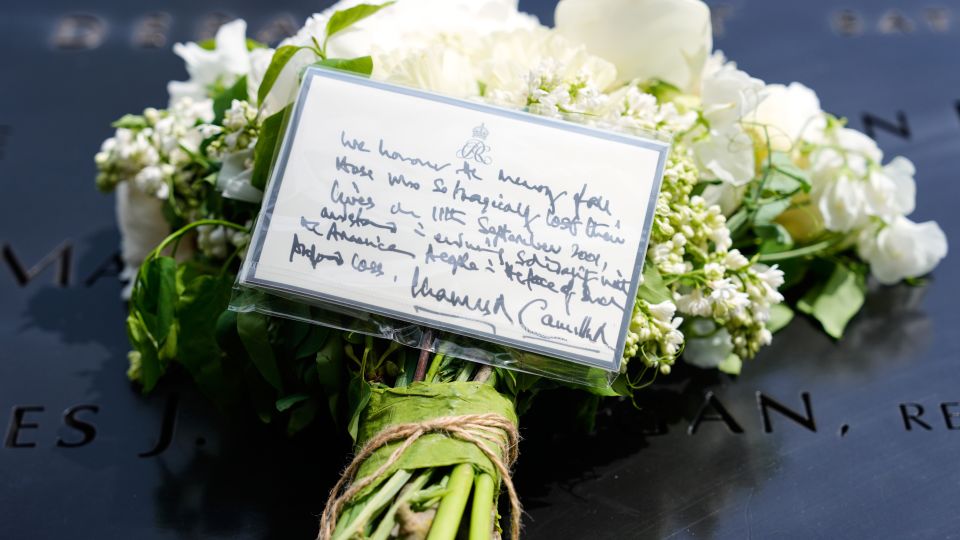 We honour the memory of all
those who so tragically lost their
lives on 11th September 2001,
and stand in enduring solidarity with
the American people in the face of their
profound loss.
Charles R Camilla R
MA
ES J.
GAN, RE